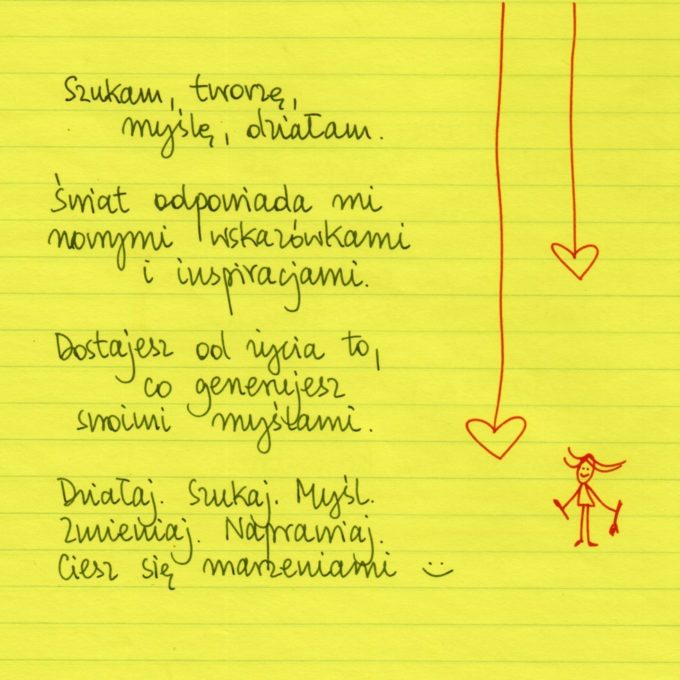 Szukam, tworzę,
myślę, działam.
Świat odpowiada mi
nowymi wskazówkami
i inspiracjami.
Dostajesz od życia to,
co generujesz
swoimi myślami.
Działaj. Szukaj. Myśl.
Zmieniaj. Naprawiaj.
Ciesz się marzeniami :)